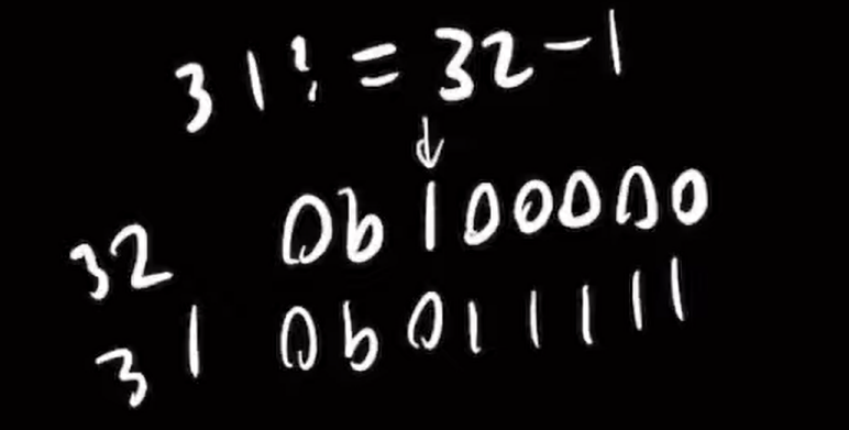 31! = 32-1
↓
32 0b100000
31 0b011111